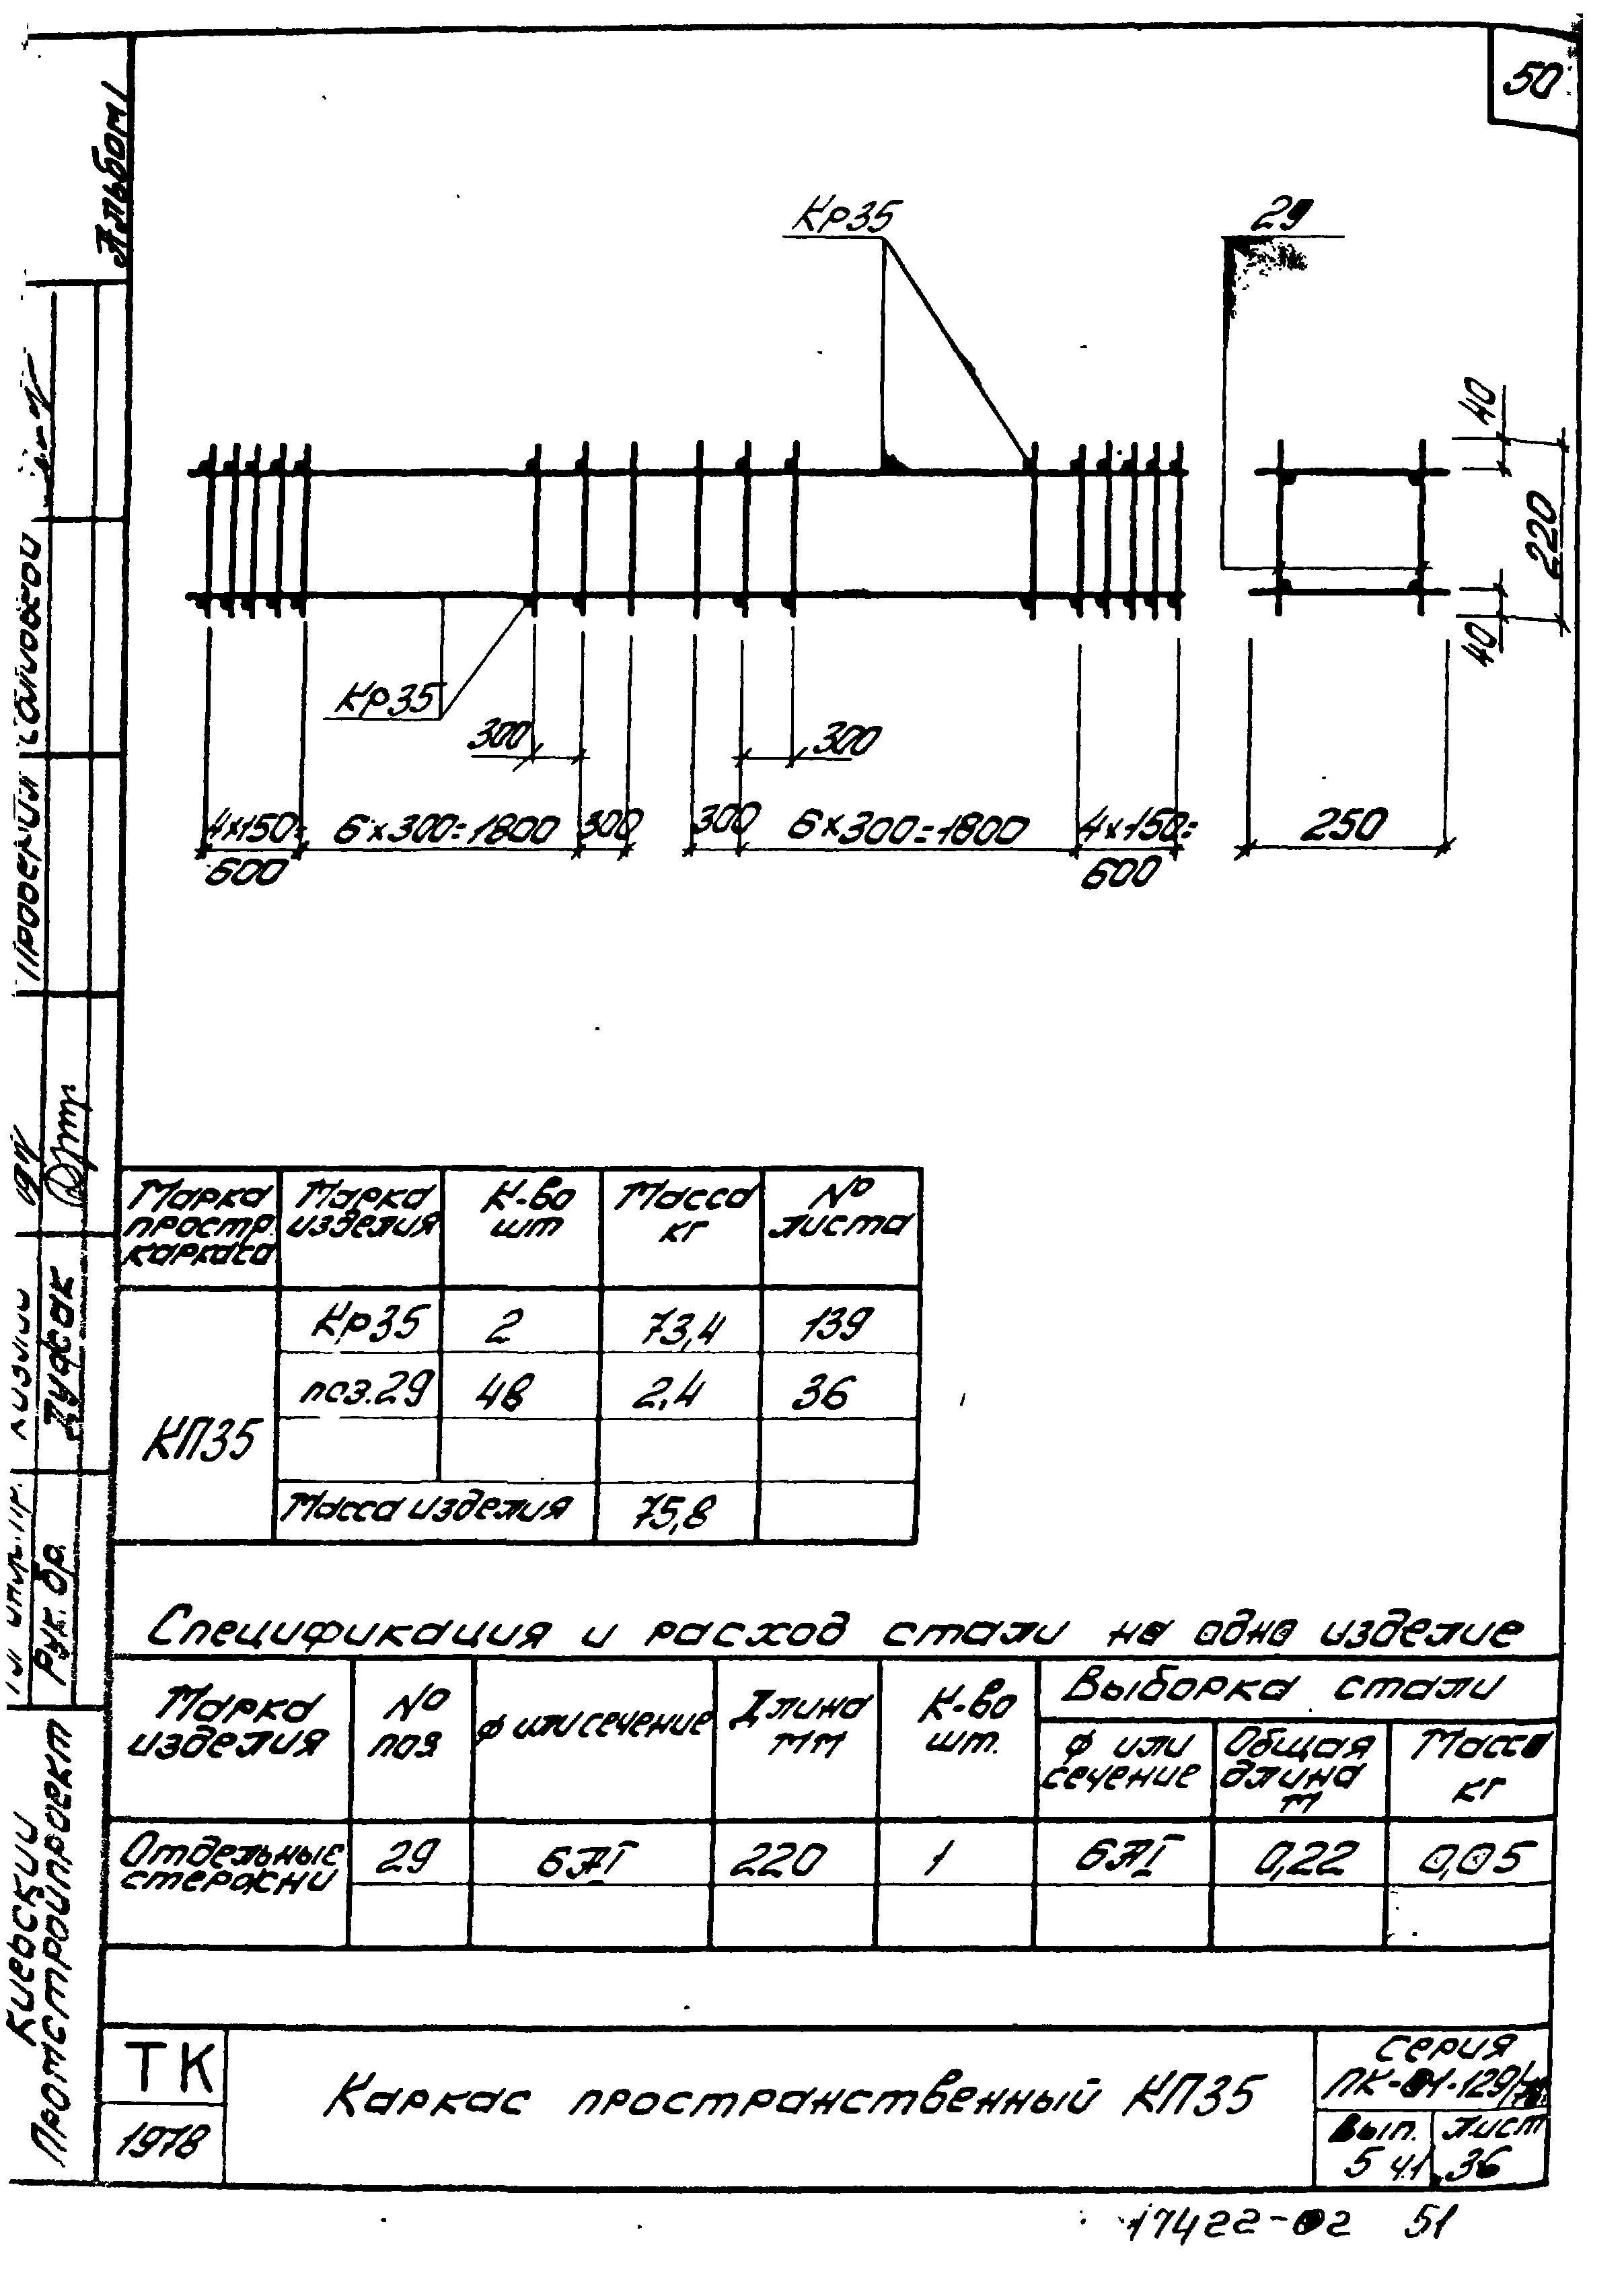 50
Альбом 1
Кр35
29
40
220
40
Кр35
300
300
4×150=
600
6×300=1800
300
300
6×300=1800
4×150=
600
250
Марка простр. каркаса
Марка изделия
К-во шт
Масса кг
№ листа
КП35
Кр35 2 73,4 139
поз.29 48 2,4 36
Масса изделия 75,8
Спецификация и расход стали на одно изделие
Марка изделия
№ поз.
ф или сечение
Длина мм
К-во шт.
Выборка стали
ф или сечение
Общая длина м
Масса кг
Отдельные стержни 29 6АI 220 1 6АI 0,22 0,05
ТК
1978
Каркас пространственный КП35
Серия
ПК-01-129/
Вып.
5 ч.1
лист
36
17422-02 51
Киевский
Промстройпроект
Рук. бр.
Дусак
Проверил